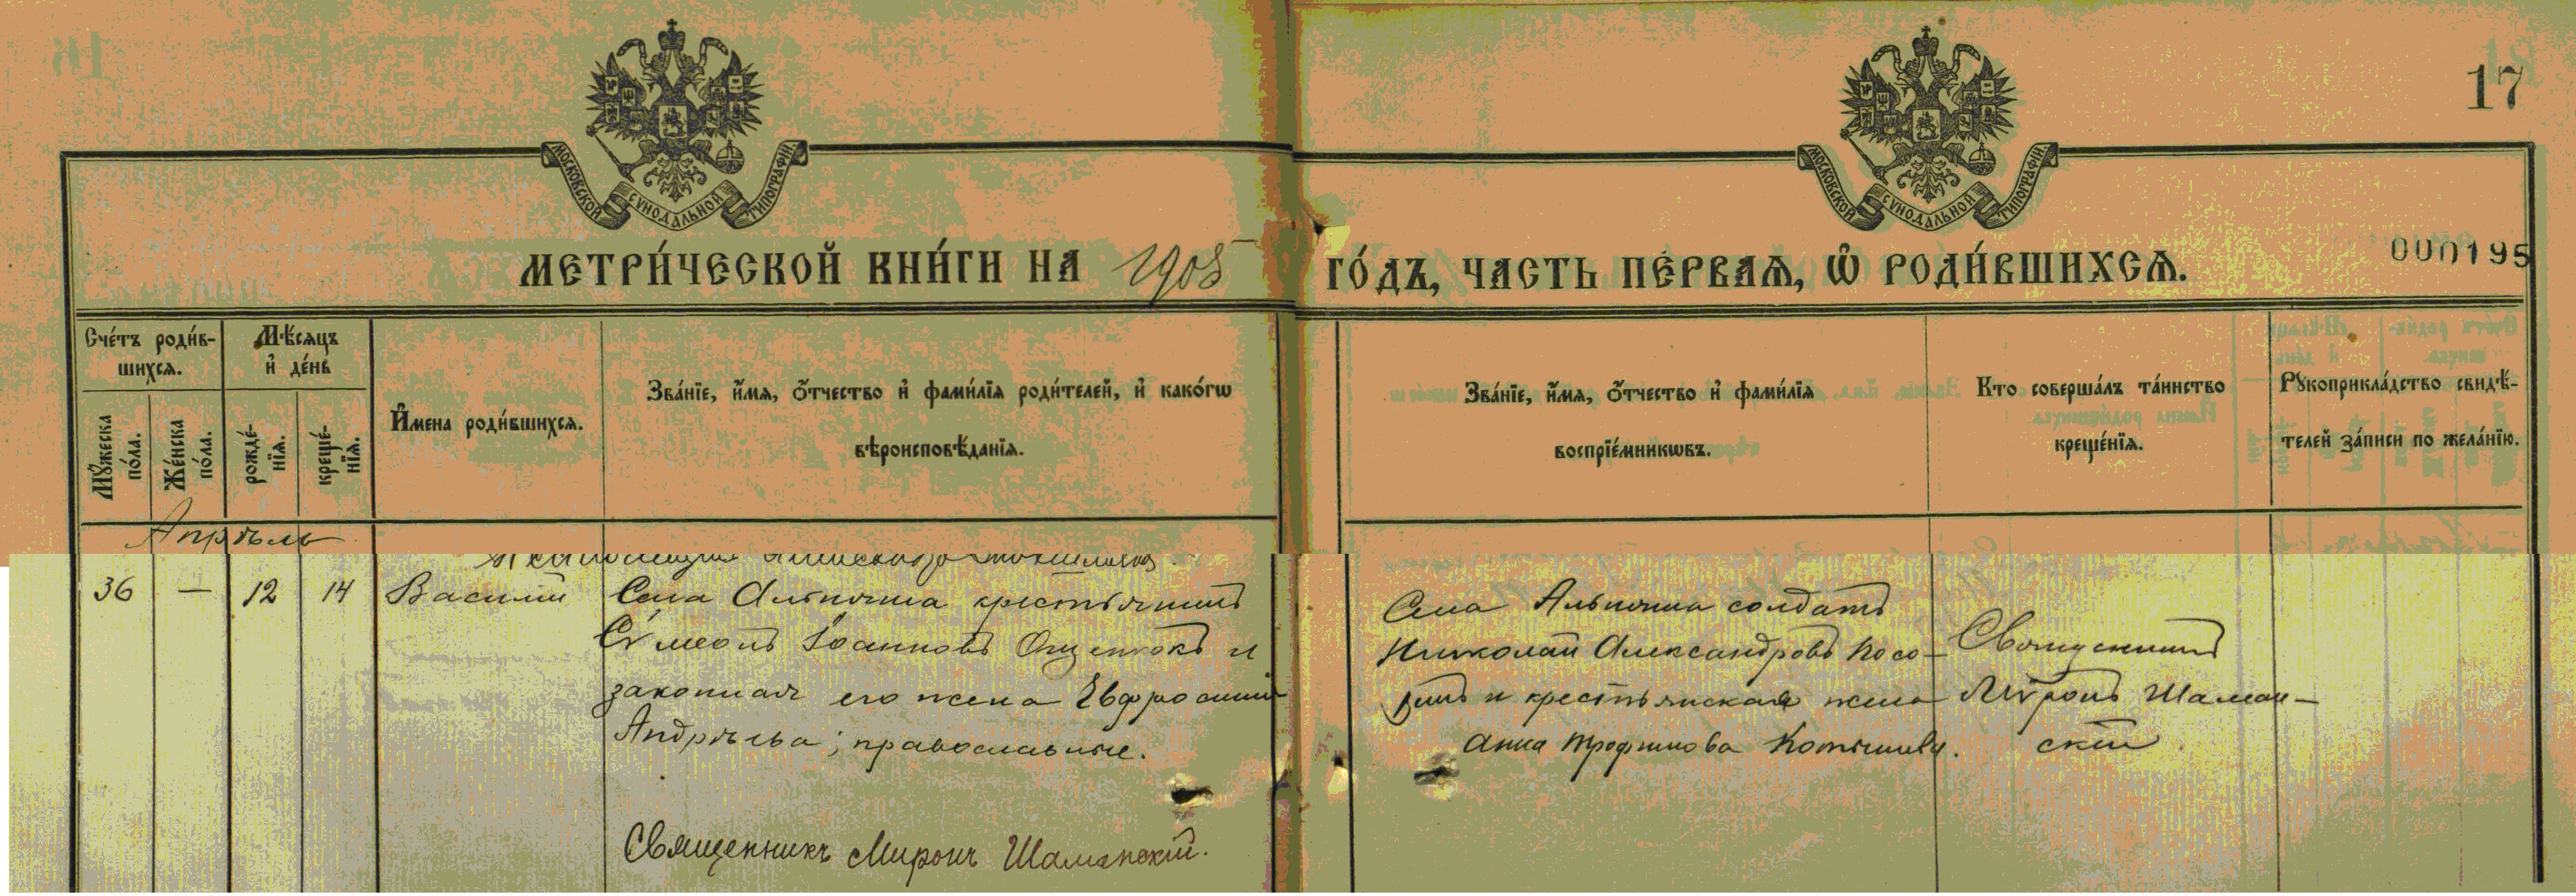 17
МОСКОВСКОЙ СѴНОДАЛЬНОЙ ТИПОГРАФІИ.
МОСКОВСКОЙ СѴНОДАЛЬНОЙ ТИПОГРАФІИ.
МЕТРИ́ЧЕСКОЙ КНИ́ГИ НА 1905 ГО́ДЪ, ЧАСТЬ ПЕ́РВАѦ, Ѽ РОДИ́ВШИХСѦ.
000195
Сче́тъ роди́в-
шихсѧ.
Мꙋ́жеска
по́ла.
Же́нска
по́ла.
Мѣ́сѧцъ
и҆ де́нь
рожде́-
нїѧ.
креще́-
нїѧ.
И҆мена роди́вшихсѧ.
Зва́нїе, и҆́мѧ, ѻ҆́тчество и҆ фами́лїѧ роди́телей, и҆ како́гѡ
вѣроисповѣ́данїѧ.
Зва́нїе, и҆́мѧ, ѻ҆́тчество и҆ фами́лїѧ
воспрїе́мникѡвъ.
Кто соверша́лъ та́инство
креще́нїѧ.
Рꙋкоприкла́дство свидѣ́-
телей за́писи по жела́нїю.
Апрѣль
36 — 12 14 Василій Села Альпочка крестьянинъ
Сѵмеонъ Іоанновъ Ощепковъ и
законная его жена Евфросинія
Андреева; православные.
Села Альпочка солдатъ
Николай Александровъ Косо-
и крестьянская жена
Анна Трофимова
Священникъ
Мѵронъ Шаман-
скій
Священникъ Миронъ Шаманскій.